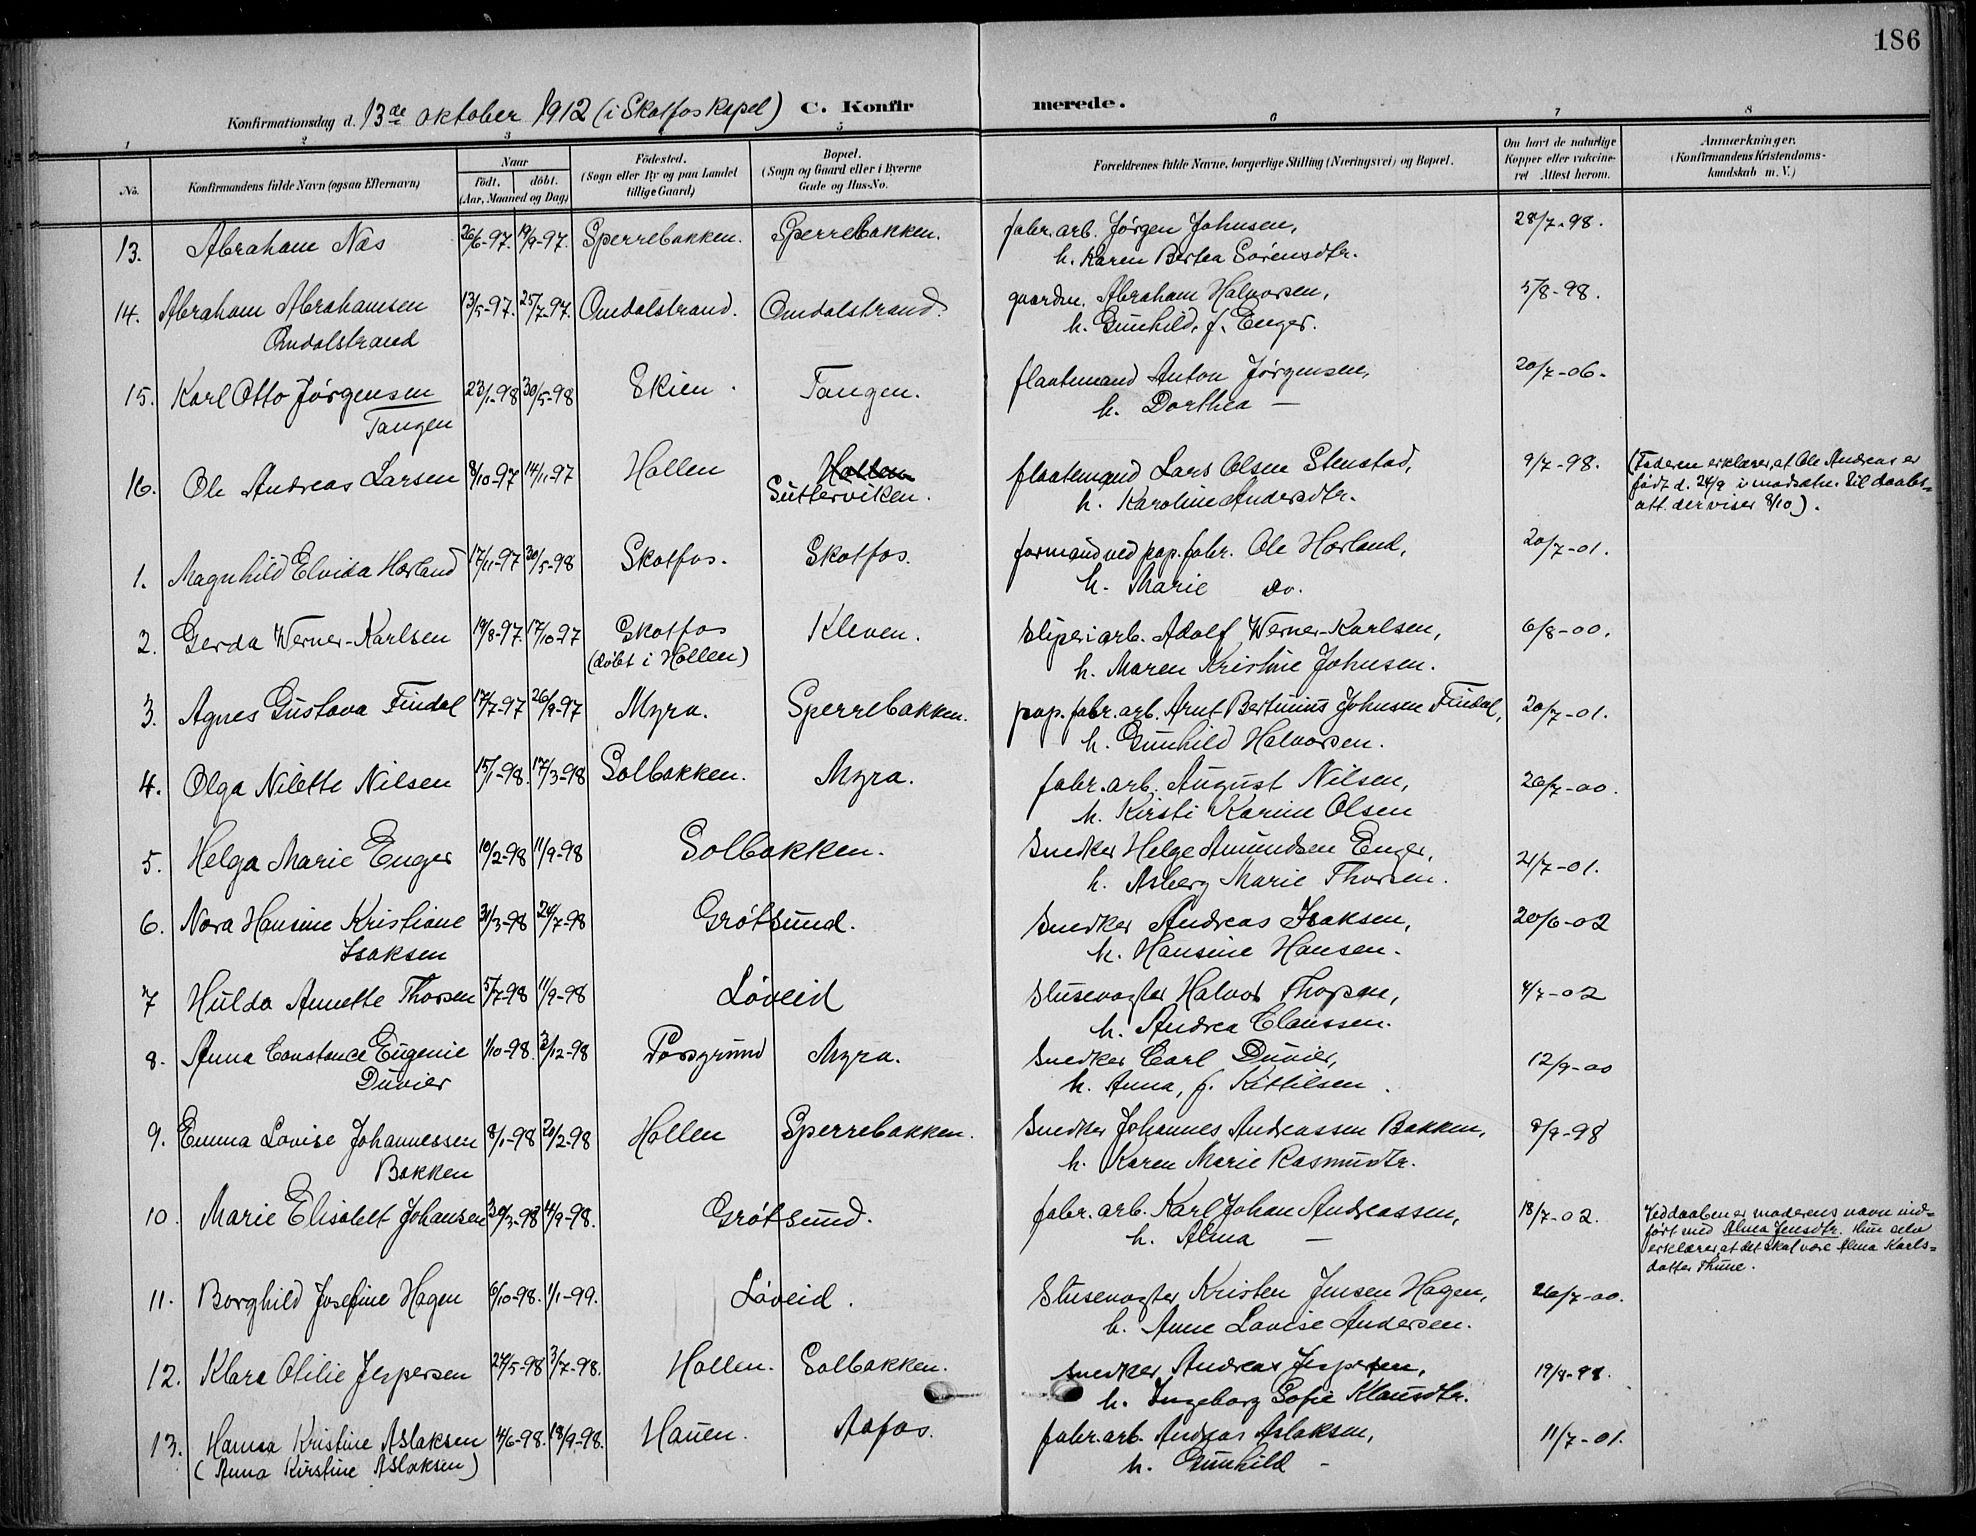 186
Konfirmationsdag d. 13de oktober 1912 (i Skotfos kapel) C. Konfirmerede.
1 2 3 5 6 7 8
No. Konfirmandens fulde Navn (ogsaa Efternavn) Naar født. døbt. (Aar, Maaned og Dag) Fødested. (Sogn eller By og paa Landet tillige Gaard) Bopæl. (Sogn og Gaard eller i Byerne Gade og Hus-No. Forældrenes fulde Navne, borgerlige Stilling (Næringsvei) og Bopæl. Om havt de naturlige Kopper eller vaccineret Attest herom. Anmærkninger. (Konfirmandens Kristendomskundskab m. V.)
13. Abraham Næs 26/6-97. 19/9-97. Sperrebakken. Sperrebakken. fabr. arb. Jørgen Johnsen, 28/7-98.
h. Karen Bertea Sørensdtr.
14. Abraham Abrahamsen 13/5-97. 25/7-97. Omdalstrand. Omdalstrand. gaardm. Abraham Halvorsen, 5/8-98.
Omdalstrand h. Gunhild, f. Enger.
15. Karl Otto Jørgensen 23/1-98 30/5-98 Skien. Tangen. fløtemand Anton Jørgensen, 20/7-06.
Tangen h. Dorthea —
16. Ole Andreas Larsen 8/10-97 14/11-97 Hollen Hollen fløtemand Lars Olsen Stenstad, 9/7-98. (Faderen erklærer, at Ole Andreas er
Sutterviken. h. Karoline Andersdtr. født d. 24/9 i modsætn. til daabs-
att. der viser 8/10).
1. Magnhild Elvida Hørland 17/11-97 30/5-98 Skotfos. Skotfos. formand ved pap. fabr. Ole Hørland, 20/7-01.
h. Marie do.
2. Gerda Werner-Karlsen 19/8-97. 17/10-97 Skotfos Kleven. Sliperiarb. Adolf Werner-Karlsen, 6/8-00.
(døbt i Hollen) h. Maren Kristine Johnsen.
3. Agnes Gustava Findal 17/7-97 26/9-97 Myra. Sperrebakken. pap. fabr. arb. Arnt Bertinius Johnsen Findal, 20/7-01.
h. Gunhild Halvorsen.
4. Olga Nilette Nilsen 15/1-98. 17/3-98 Solbakken. Myra. fabr. arb. August Nilsen, 26/7-00.
h. Kirsti Karine Olsen
5. Helga Marie Enger 10/2-98 11/9-98 Solbakken. Snedker Helge Amundsen Enger, 21/7-01.
h. Asberg Marie Thorsen.
6. Nora Hansine Kristiane 31/3-98 24/7-98 Grøtsund. Snedker Andreas Isaksen, 20/6-02
Isaksen h. Hansine Hansen.
7 Hulda Annette Thorsen 5/7-98 11/9-98 Løveid Slusevogter Halvor Thorsen, 4/7-02
h. Andrea Claussen.
8. Anna Constance Eugenie 1/10-98. 3/12-98 Porsgrund Myra. Snedker Carl Duvier, 12/9-00
Duvier h. Anna, f. Kittilsen.
9. Emma Lovise Johannessen 8/1-98 20/2-98 Hollen Sperrebakken. Snedker Johannes Andreassen Bakken, 8/9-98
Bakken h. Karen Marie Rasmusdtr.
10. Marie Elisabet Johansen 30/3-98 4/9-98. Grøtsund. fabr. arb. Karl Johan Andreassen, 18/7-02. Ved daaben er moderens navn ind-
h. Alma — ført med Alma Jensdtr. Hun selv
erklærer, at det skal være Alma Karls-
datter Thune.
11. Borghild Josefine Hagen 6/10-98. 1/1-99. Løveid. Slusevogter Kristen Jensen Hagen, 26/7-00.
h. Anne Lovise Andersen.
12. Klara Otilie Jespersen 24/5-98 3/7-98. Hollen. Solbakken. Snedker Andreas Jespersen, 19/8-98.
h. Ingeborg Sofie Klausdtr.
13. Hanna Kristine Aslaksen 4/6-98. 18/9-98. Hauen. Aafos. fabr. arb. Andreas Aslaksen, 11/7-01.
(Anna Kirstine Aslaksen) h. Gunhild -